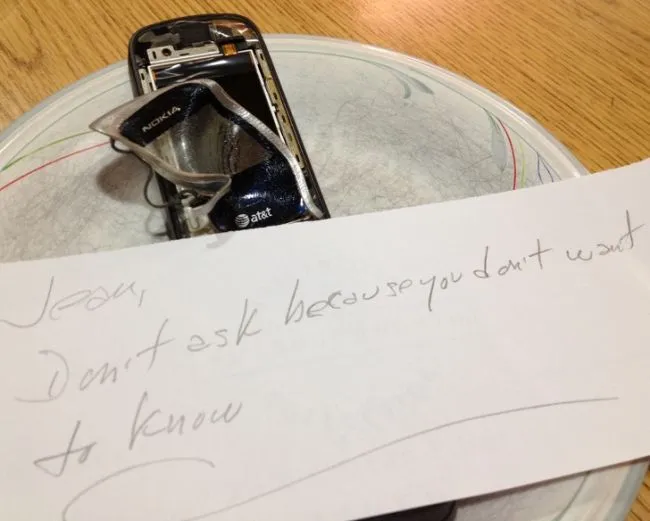 NOKIA
at&t
Jean,
Don't ask because you don't want
to know